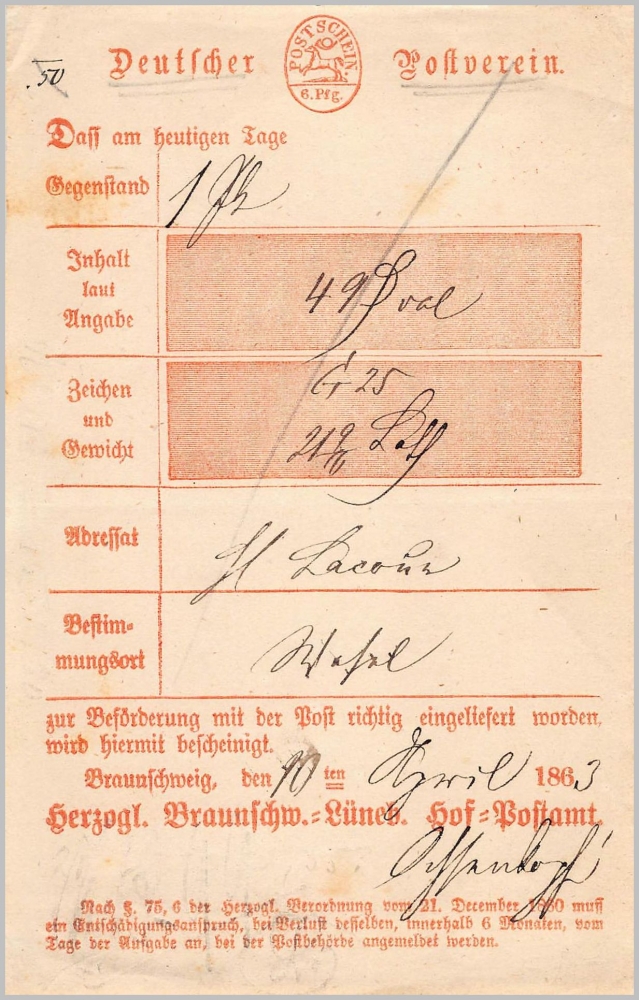 .50
Deutscher Postverein.
POSTSCHEIN.
6.Pfg.
Dass am heutigen Tage
Gegenstand
Inhalt
laut
Angabe
49
Zeichen
und
Gewicht
Gr 25
Loth
Adressat
H Lacour
Bestim-
mungsort
Wesel
zur Beförderung mit der Post richtig eingeliefert worden,
wird hiermit bescheinigt.
Braunschweig, den 10ten April 1863
Herzogl. Braunschw.=Lüneb. Hof=Postamt.
Nach §. 75, 6 der Herzogl. Verordnung vom 21. December 1860 muss
ein Entschädigungsanspruch, bei Verlust desselben, innerhalb 6 Monaten, vom
Tage der Aufgabe an, bei der Postbehörde angemeldet werden.